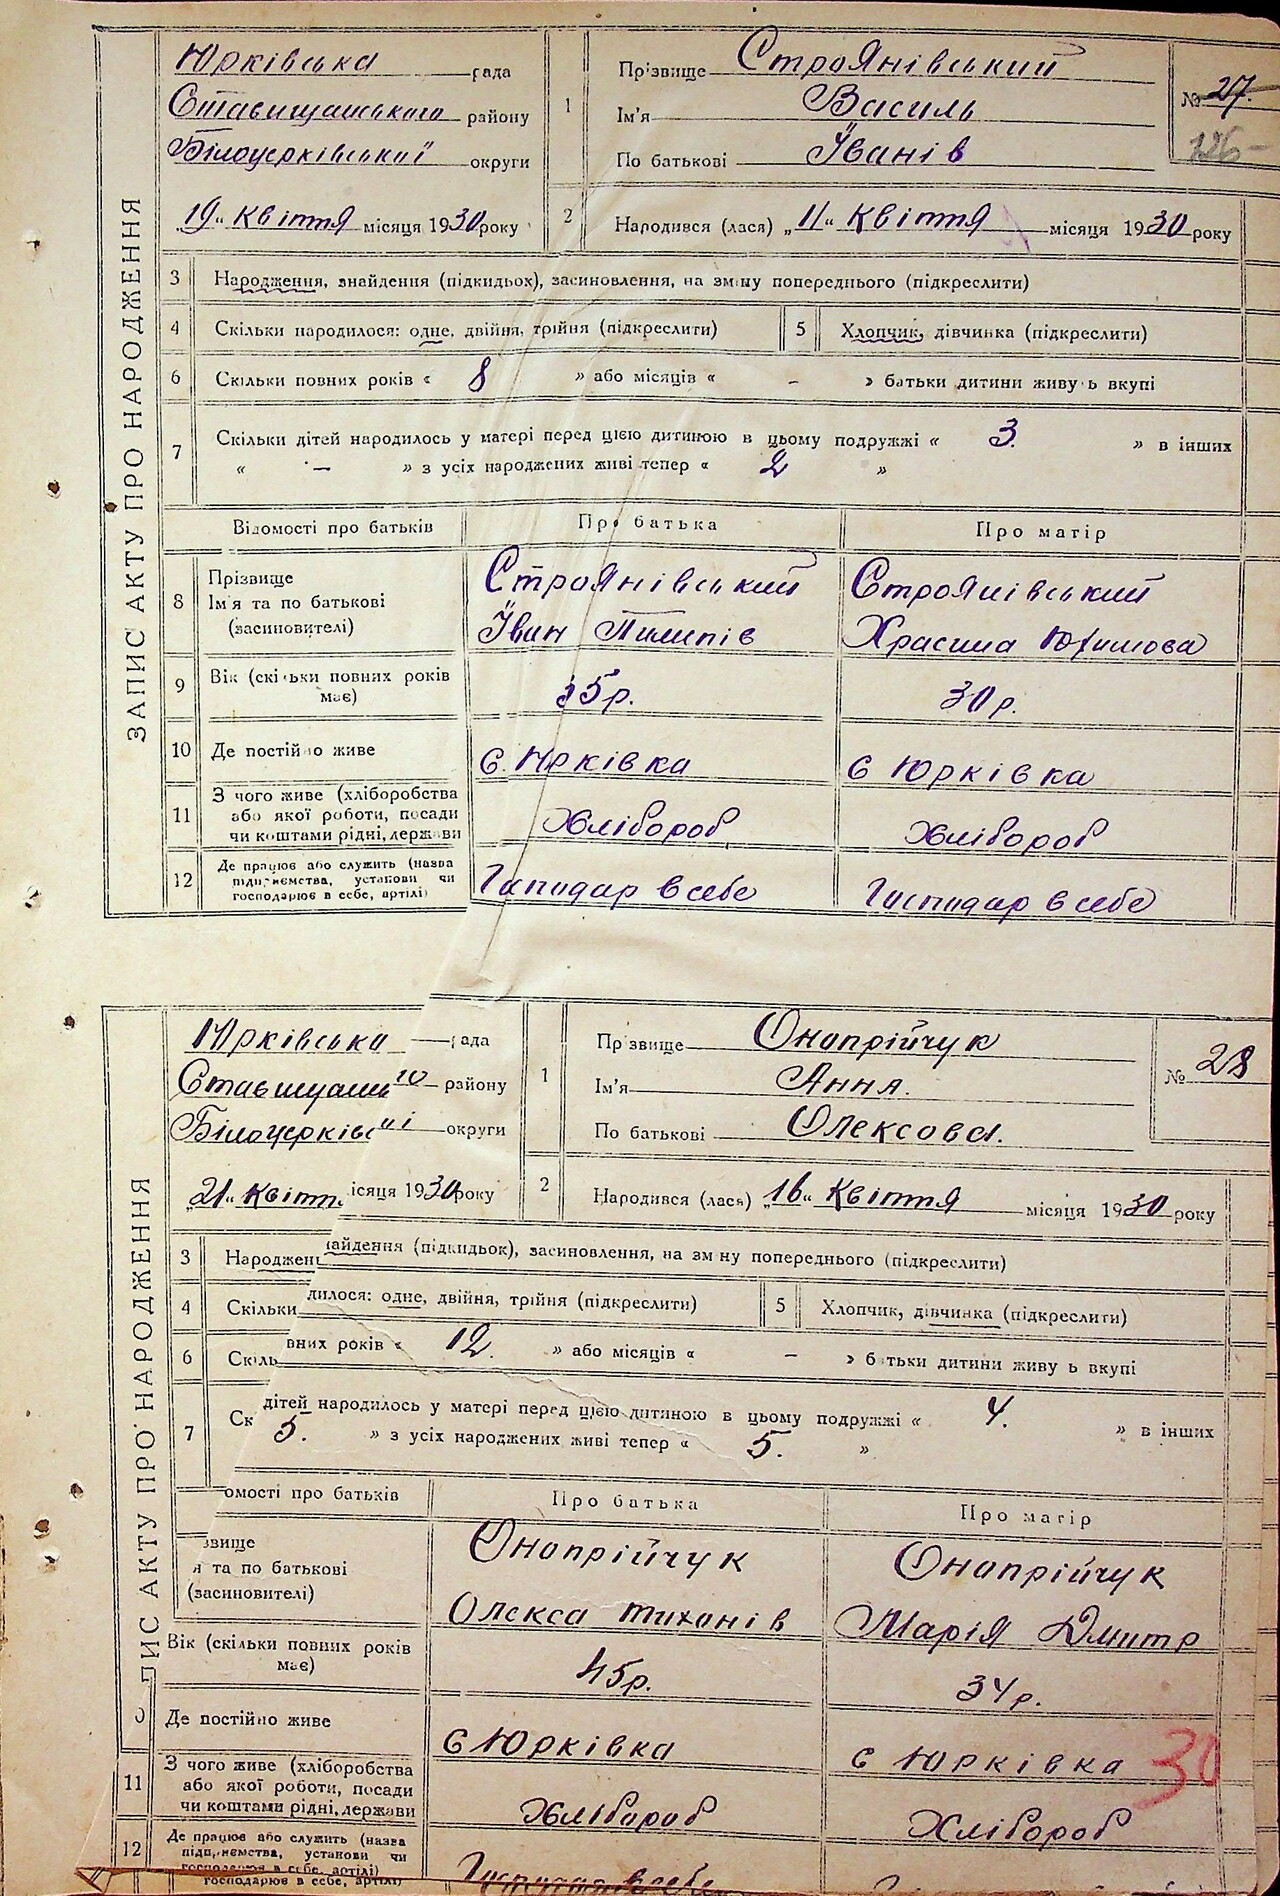 ЗАПИС АКТУ ПРО НАРОДЖЕННЯ
Юрківська рада
Ставищанського району
Білоцерківської округи
„19“ квіття місяця 1930 року
1
Прізвище Строянівський
Ім'я Василь
По батькові Іванів
№ 27.
126
2 Народився (лася) „11“ квіття місяця 1930 року
3 Народження, знайдення (підкидьок), засиновлення, на зміну попереднього (підкреслити)
4 Скільки народилося: одне, двійня, трійня (підкреслити) 5 Хлопчик, дівчинка (підкреслити)
6 Скільки повних років « 8 » або місяців « - » батьки дитини живуть вкупі
7 Скільки дітей народилось у матері перед цією дитиною в цьому подружжі « 3. » в інших
« - » з усіх народжених живі тепер « 2 »
Відомості про батьків Про батька Про матір
8 Прізвище
Ім'я та по батькові
(засиновителі)
Строянівський
Іван Пилипів
Строянівський
Храсина Юхимова
9 Вік (скільки повних років має) 35р. 30р.
10 Де постійно живе с. Юрківка с Юрківка
11 З чого живе (хліборобства
або якої роботи, посади
чи коштами рідні, держави
Хлібороб Хлібороб
12 Де працює або служить (назва
підприємства, установи чи
господарює в себе, артілі)
Господар в себе Господар в себе
ПИС АКТУ ПРО НАРОДЖЕННЯ
Юрківська рада
Ставищан го району
Білоцерківс ії округи
„21“ квітт ісяця 1930 року
1
Прізвище Онопрійчук
Ім'я Анна.
По батькові Олексова.
№ 28
2 Народився (лася) „16“ квіття місяця 1930 року
3 Народжен найдення (підкидьок), засиновлення, на зміну попереднього (підкреслити)
4 Скільки дилося: одне, двійня, трійня (підкреслити) 5 Хлопчик, дівчинка (підкреслити)
6 Скіль вних років « 12. » або місяців « - » батьки дитини живуть вкупі
7 Ск дітей народилось у матері перед цією дитиною в цьому подружжі « 4. » в інших
5. » з усіх народжених живі тепер « 5. »
омості про батьків Про батька Про матір
звище
я та по батькові
(засиновителі)
Онопрійчук
Олекса Тиханів
Онопрійчук
Марія Дмитр
Вік (скільки повних років має) 45р. 34р.
Де постійно живе с Юрківка с Юрківка
30
11 З чого живе (хліборобства
або якої роботи, посади
чи коштами рідні, держави
Хлібороб Хлібороб
12 Де працює або служить (назва
підприємства, установи чи
господарює в себе, артілі)
господарює в себе, артілі)